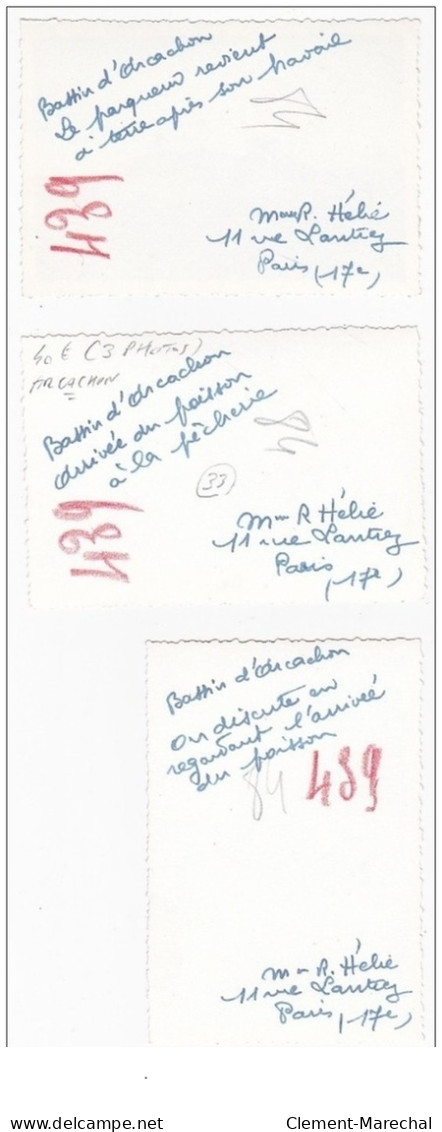 Bassin d'Arcachon
Le parqueur revient
à terre après son travail
84
439
Mme R. Hélié
11 rue Lantiez
Paris (17e)
40 € (3 PHOTOS)
ARCACHON
Bassin d'Arcachon
Arrivée du poisson
à la pêcherie
84
33
439
Mme R Hélié
11 rue Lantiez
Paris
(17e)
Bassin d'Arcachon
On discute en
regardant l'arrivée
du poisson
84
439
Mme R. Hélié
11 rue Lantiez
Paris (17e)
delcampe.net
Clement-Marechal